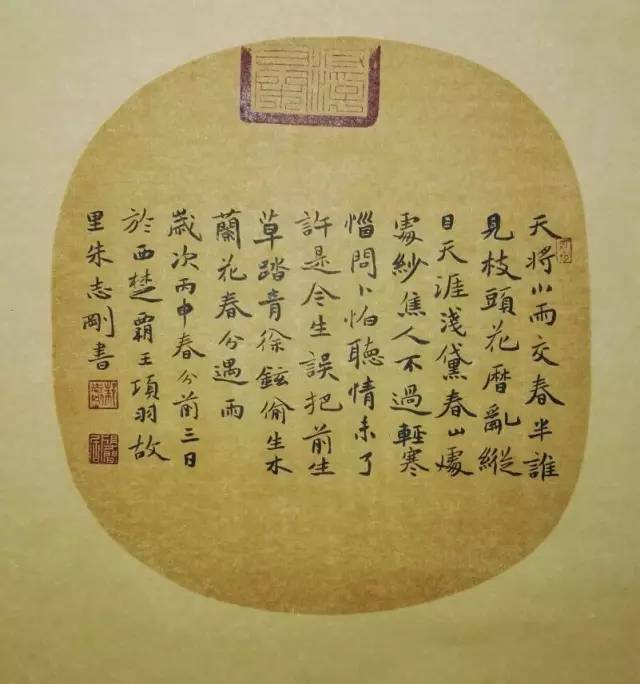 天將小雨交春半誰
見枝頭花曆亂縱
目天涯淺黛春山處
處紗焦人不過輕寒
惱問卜怕聽情未了
許是今生誤把前生
草踏青徐鉉偷生木
蘭花春分遇雨
歲次丙申春分前三日
於西楚霸王項羽故
里朱志剛書